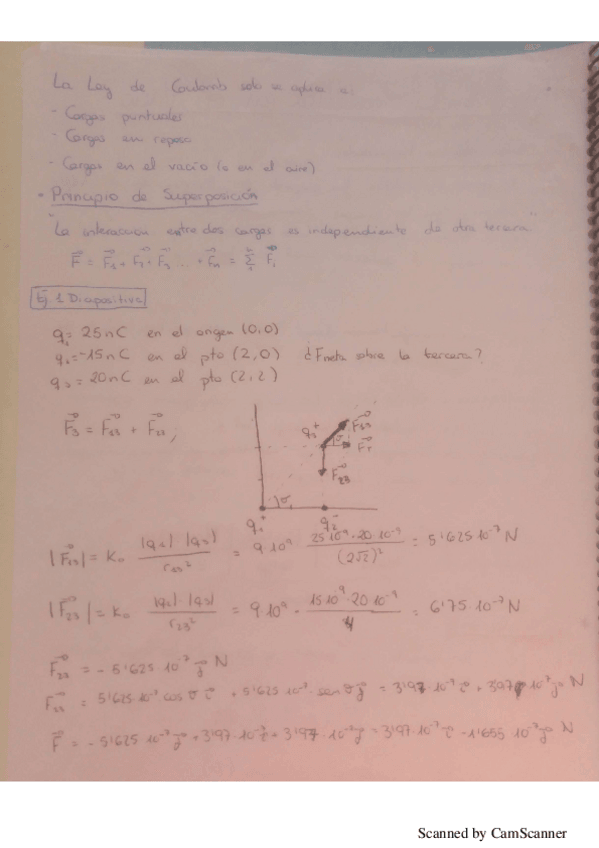 La Ley de Coulomb solo se aplica a:
- Cargas puntuales
- Cargas en reposo
- Cargas en el vacío (o en el aire)
• Principio de Superposición
"La interacción entre dos cargas es independiente de otra tercera"
F⃗ = F⃗₁ + F⃗₂ + F⃗₃ ... + F⃗ₙ = Σ F⃗ᵢ
Ej 1 Diapositiva
q₁ = 25nC en el origen (0,0)
q₂ = -15nC en el pto (2,0) ¿Fneta sobre la tercera?
q₃ = 20nC en el pto (2,2)
F⃗₃ = F⃗₁₃ + F⃗₂₃,
q₃⁺ F⃗₁₃
F⃗ᵣ
F⃗₂₃
q₁⁺ q₂⁻
|F⃗₁₃| = K₀ |q₁|·|q₃| / r₁₃² = 9·10⁹ 25·10⁻⁹·20·10⁻⁹ / (2√2)² = 5'625·10⁻⁷ N
|F⃗₂₃| = K₀ |q₂|·|q₃| / r₂₃² = 9·10⁹ · 15·10⁻⁹·20·10⁻⁹ / 4 = 6'75·10⁻⁷ N
F⃗₂₃ = - 5'625·10⁻⁷ j⃗ N
F⃗₁₃ = 5'625·10⁻⁷ cos σ i⃗ + 5'625·10⁻⁷ · sen σ j⃗ = 3'97·10⁻⁷ i⃗ + 3'97·10⁻⁷ j⃗ N
F⃗ = - 5'625·10⁻⁷ j⃗ + 3'97·10⁻⁷ i⃗ + 3'97·10⁻⁷ j⃗ = 3'97·10⁻⁷ i⃗ - 1'655·10⁻⁷ j⃗ N
Scanned by CamScanner